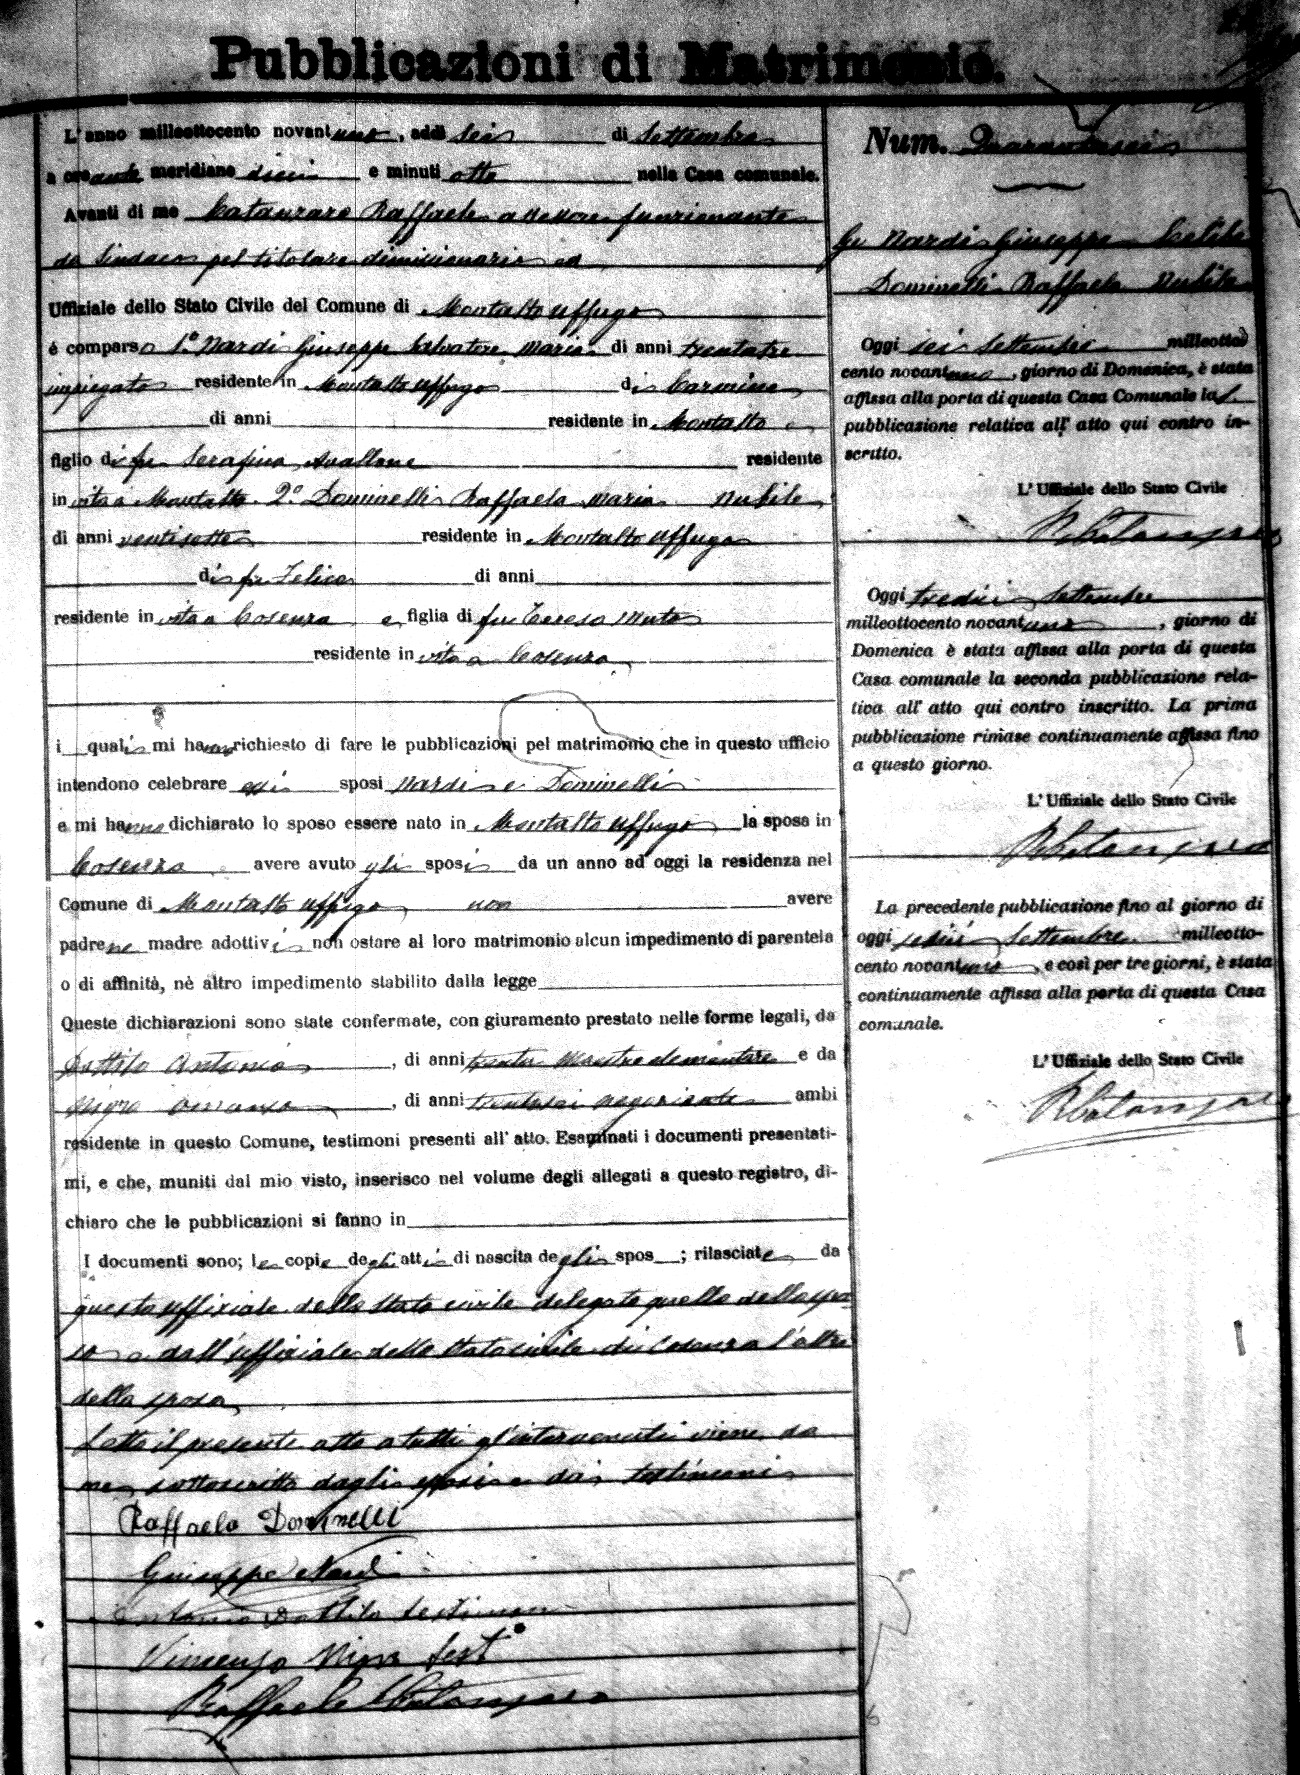 Pubblicazioni di Matrimonio.
L'anno milleottocento novantuno, addì sei di Settembre
a ore ante meridiane dieci e minuti otto nella Casa comunale.
Avanti di me Catanzaro Raffaele assessore funzionante
da Sindaco pel titolare dimissionario ed
Uffiziale dello Stato Civile del Comune di Montalto Uffugo
é comparso 1.º Nardi Giuseppe Salvatore Maria di anni trentatre
impiegato residente in Montalto Uffugo di Carmine
di anni residente in Montalto e
figlio di fu Serafina Avallone residente
in vita a Montalto. 2.º Dominelli Raffaela Maria Nubile
di anni ventisette residente in Montalto Uffugo
di fu Felice di anni
residente in vita a Cosenza e figlia di fu Teresa Muto
residente in vita a Cosenza
i quali mi hanno richiesto di fare le pubblicazioni pel matrimonio che in questo ufficio
intendono celebrare essi sposi Nardi e Dominelli
e mi hanno dichiarato lo sposo essere nato in Montalto Uffugo la sposa in
Cosenza avere avuto gli sposi da un anno ad oggi la residenza nel
Comune di Montalto Uffugo non avere
padre ne madre adottivi non ostare al loro matrimonio alcun impedimento di parentela
o di affinità, nè altro impedimento stabilito dalla legge
Queste dichiarazioni sono state confermate, con giuramento prestato nelle forme legali, da
Dattilo Antonio, di anni trenta maestro elementare e da
Nigro, di anni trentasei negoziante ambi
residente in questo Comune, testimoni presenti all' atto. Esaminati i documenti presentati-
mi, e che, muniti dal mio visto, inserisco nel volume degli allegati a questo registro, di-
chiaro che le pubblicazioni si fanno in
I documenti sono; le copie degli atti di nascita degli spos ; rilasciate da
questo uffiziale dello stato civile delegato quello dello spo-
so e dall'uffiziale dello stato civile di Cosenza l'altro
della sposa
Letto il presente atto a tutti gl'intervenuti viene da
me sottoscritto dagli sposi e dai testimoni
Raffaela Dominelli
Giuseppe Nardi
Antonio Dattilo testimone
Vincenzo Nigro test
Raffaele Catanzaro
Num. Quarantasei
Nardi Giuseppe Celibe
Dominelli Raffaela Nubile
Oggi sei Settembre milleotto
cento novantuno, giorno di Domenica, è stata
affissa alla porta di questa Casa Comunale la 1.
pubblicazione relativa all' atto qui contro in-
scritto.
L'Uffiziale dello Stato Civile
R Catanzaro
Oggi tredici Settembre
milleottocento novantuno, giorno di
Domenica è stata affissa alla porta di questa
Casa comunale la seconda pubblicazione rela-
tiva all' atto qui contro inscritto. La prima
pubblicazione rimase continuamente affissa fino
a questo giorno.
L'Uffiziale dello Stato Civile
R Catanzaro
La precedente pubblicazione fino al giorno di
oggi sedici Settembre milleotto-
cento novantuno, e così per tre giorni, è stata
continuamente affissa alla porta di questa Casa
comunale.
L'Uffiziale dello Stato Civile
R Catanzaro